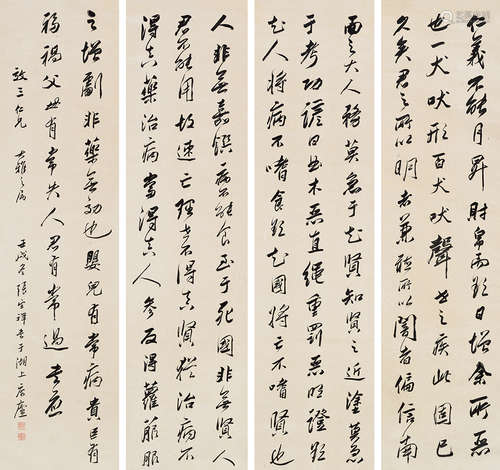 仁義不能月昇財帛而欲日增余所惡
也一犬吠形百犬吠聲世之疾此固已
久矣君之所以明者兼聽所以闇者偏信南
面之大人務莫急于知賢知賢之近塗莫急
于考功諺曰曲木惡直繩重罰惡明證欲
知人將病不嗜食欲知國將亡不嗜賢也
人非無嘉饌病不能食至于死國非無賢人
君不能用故速亡理世不得真賢猶治病不
得真藥治病當得真人參反得蘿菔服
之增劇非藥無功也嬰兒有常病貴臣有
禍父母有常失人君有常過書應
三仁兄大雅之屬
壬戌冬張宗祥書于湖上